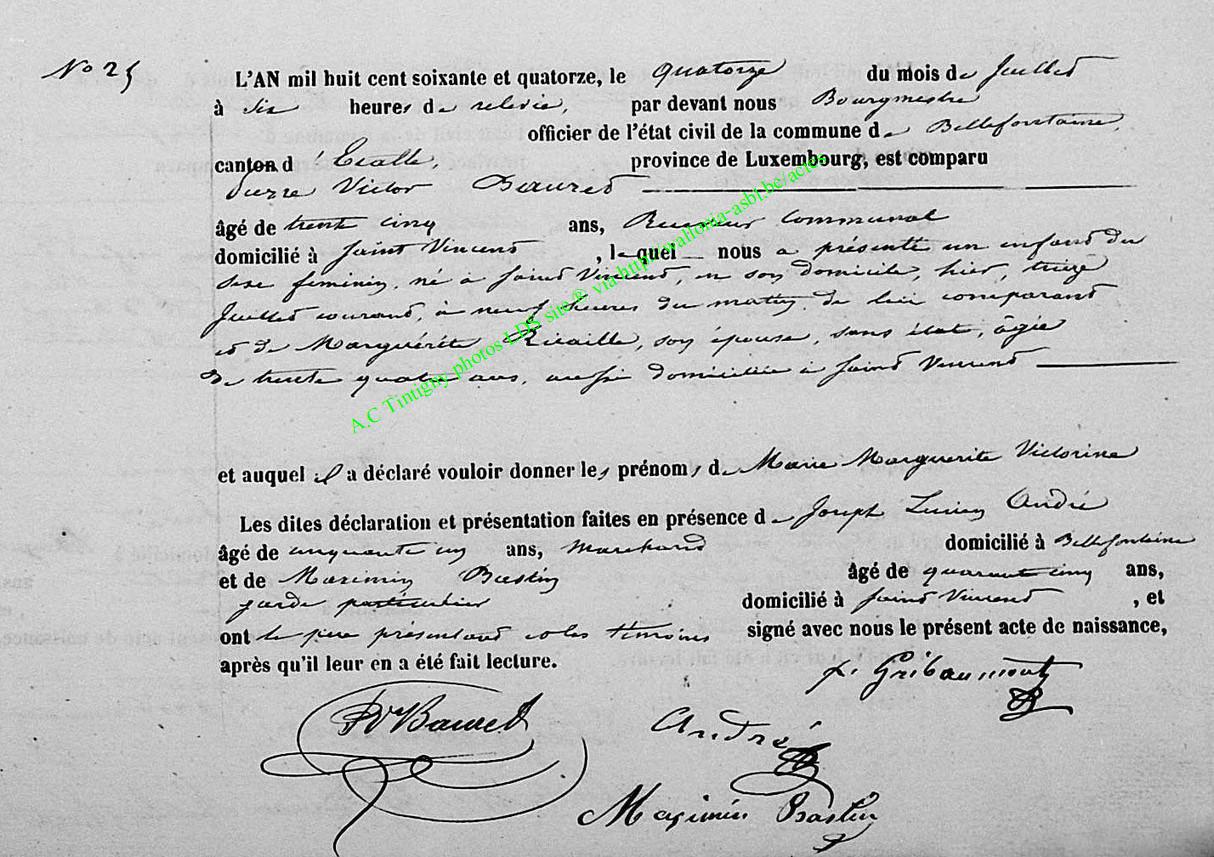 No 25
L'AN mil huit cent soixante et quatorze, le quatorze du mois de Juillet
à six heures de relevée, par devant nous Bourgmestre
officier de l'état civil de la commune de Bellefontaine,
canton d' Etalle province de Luxembourg, est comparu
Pierre Victor Bauret
âgé de trente cinq ans, Receveur Communal
domicilié à Saint Vincent, lequel nous a présenté un enfant du
sexe féminin, né à Saint Vincent, en son domicile, hier, treize
Juillet courant, à neuf heures du matin de lui comparant
et de Marguérite, son épouse, sans état, âgée
de trente quatre ans, aussi domiciliée à Saint Vincent
et auquel il a déclaré vouloir donner les prénoms de Marie Marguerite Victorine
Les dites déclaration et présentation faites en présence de Joseph Lucien André
âgé de cinquante cinq ans, Marchand domicilié à Bellefontaine
et de Maximin Bastin âgé de quarante cinq ans,
garde particulier domicilié à Saint Vincent, et
ont le père présentant et les témoins signé avec nous le présent acte de naissance,
après qu'il leur en a été fait lecture.
Gribaumont
PV Bauret André
Maximin Bastin
A.C Tintigny photos LDS site ® via http://wallonia-asbl.be/actes